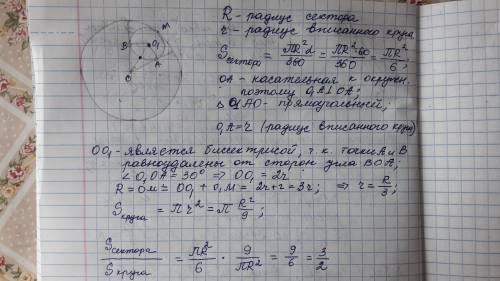 M
B
O₁
A
O
R - радиус сектора
r - радиус вписанного круга
Sсектора = πR²α/360 = πR²·60/360 = πR²/6;
OA - касательная к окружн.
поэтому O₁A⊥OA;
△ O₁AO - прямоугольный;
O₁A = r (радиус вписанного круга)
OO₁ - является биссектрисой, т.к. точки A и B
равноудалены от сторон угла BOA;
∠O₁OA = 30° ⇒ OO₁ = 2r
R = OM = OO₁ + O₁M = 2r + r = 3r; ⇒ r = R/3;
Sкруга = πr² = π R²/9;
Sсектора/Sкруга = πR²/6 · 9/πR² = 9/6 = 3/2